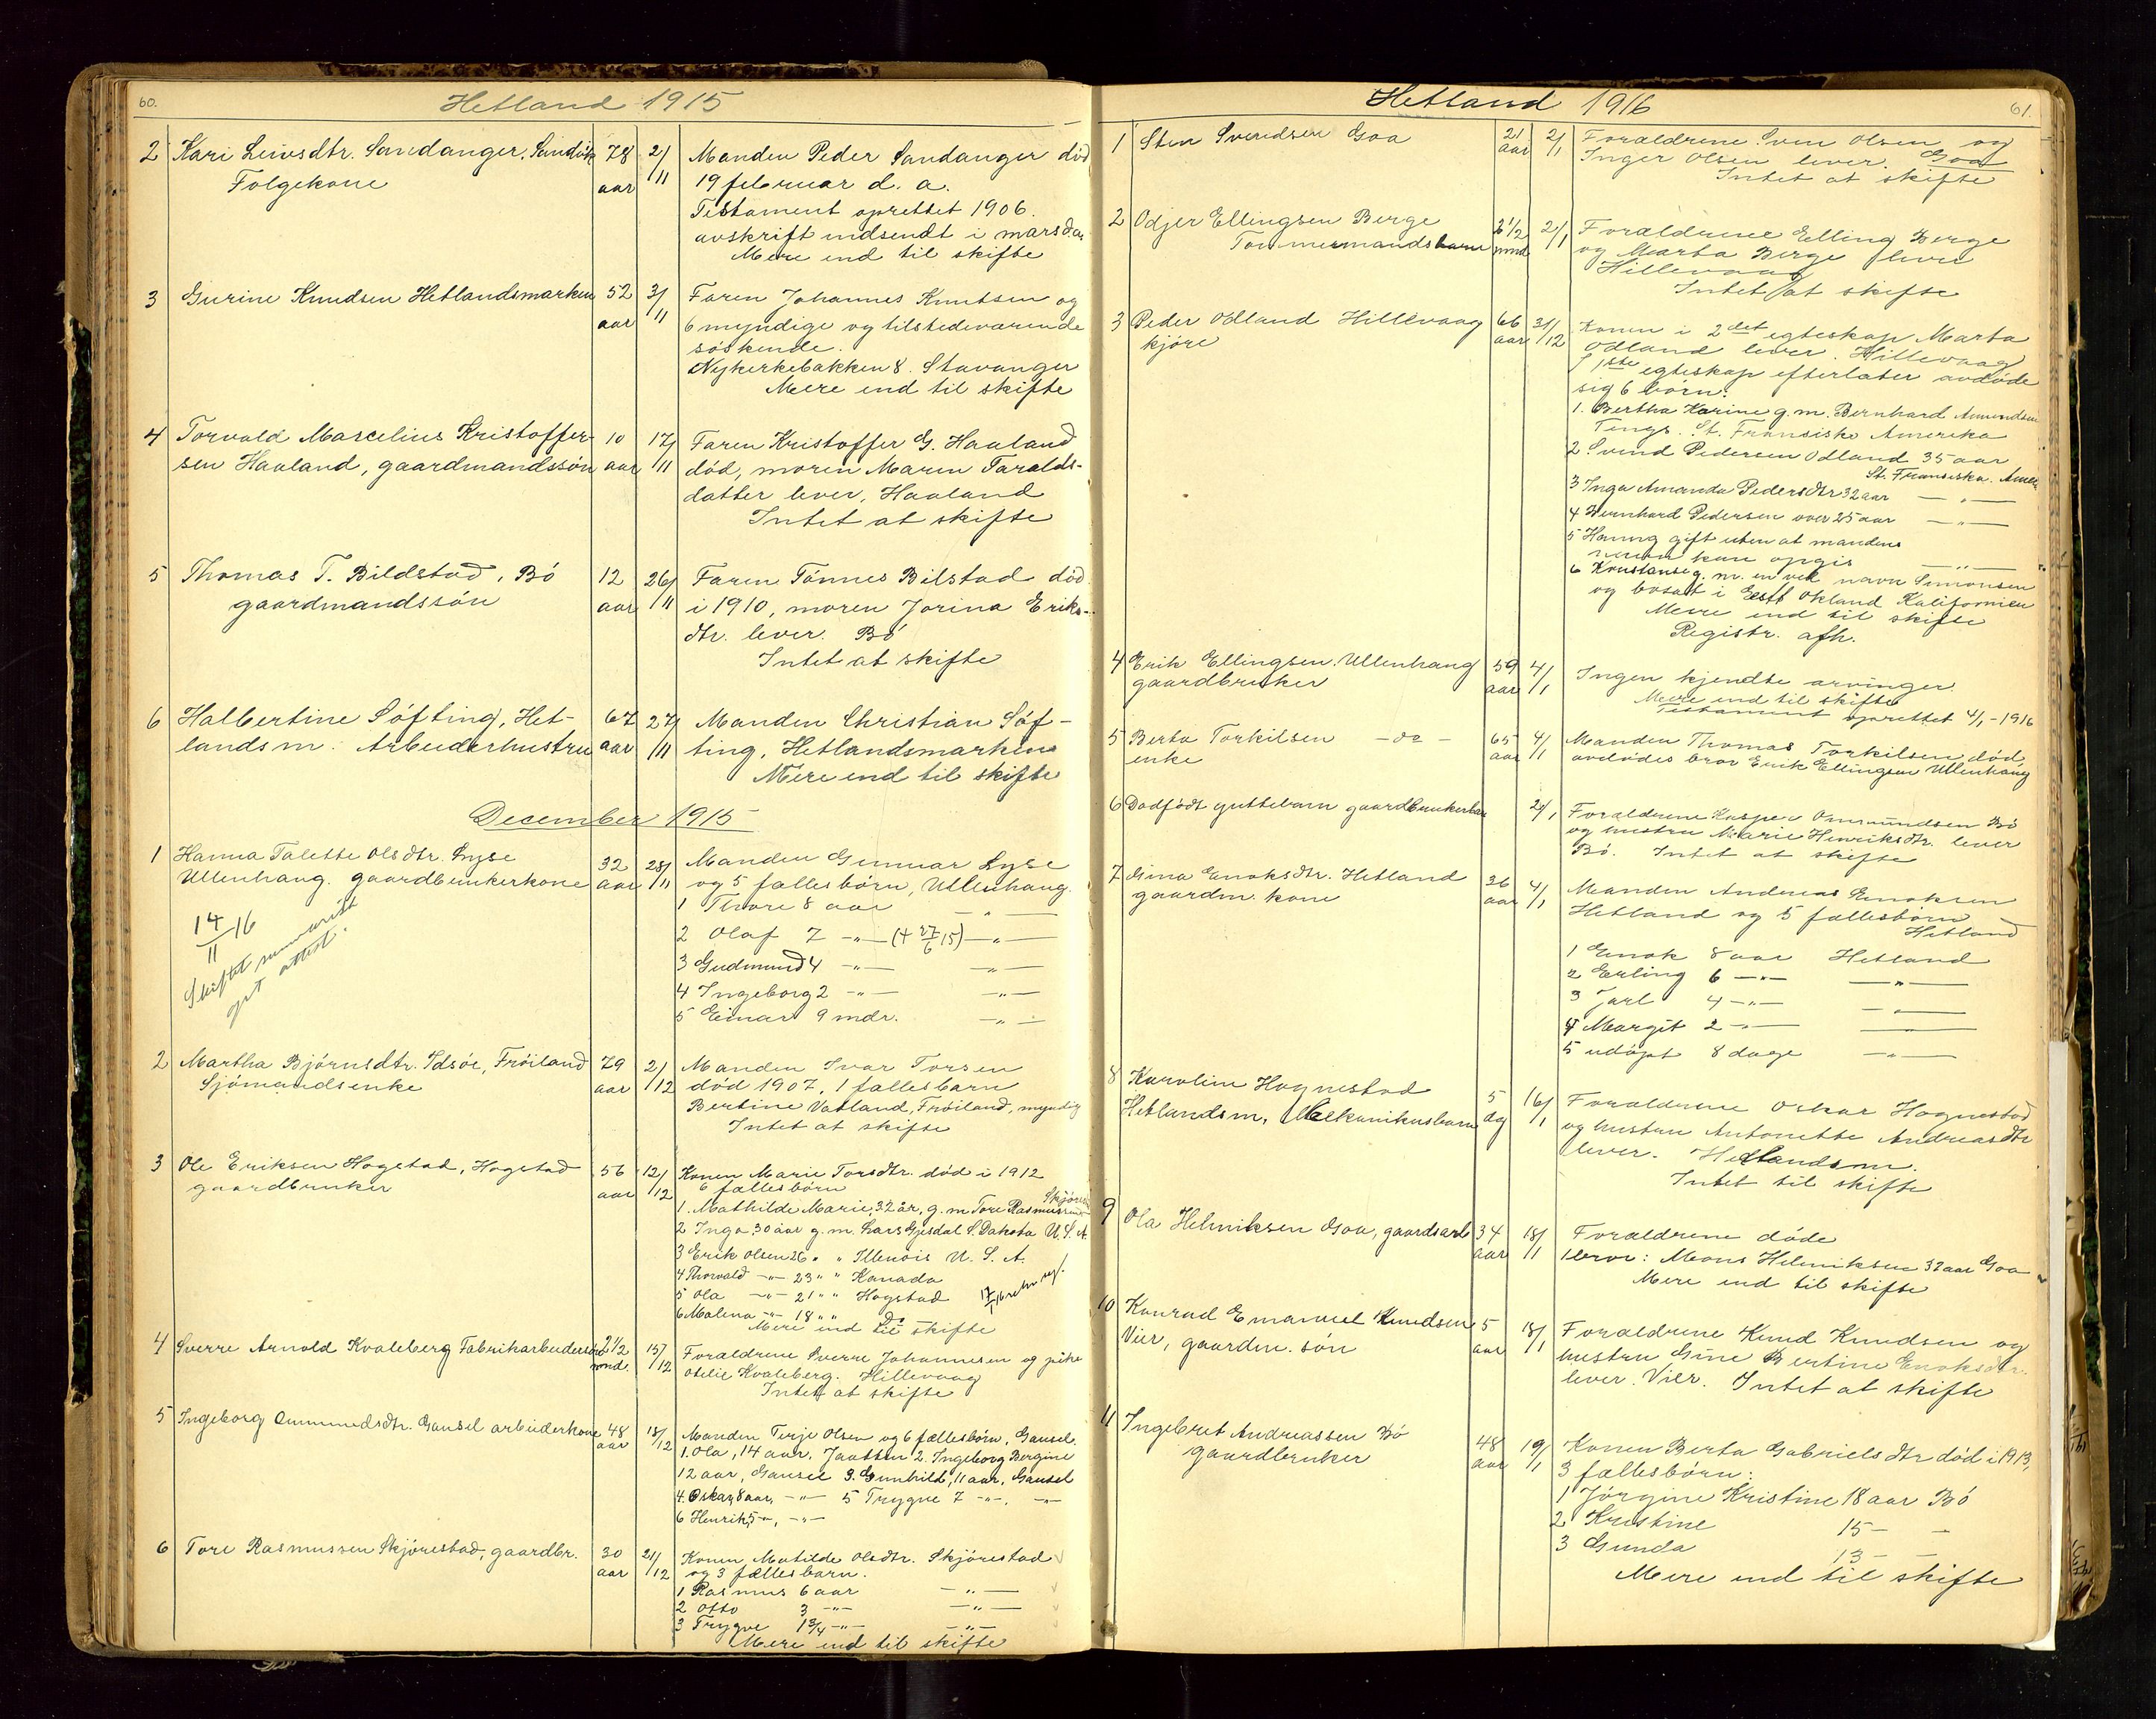 60.
Hetland 1915
2 Kari Leivsdtr. Sandanger, Sandvik 78 aar 2/11 Manden Peder Sandanger død
Folgekone 19 februar d. a.
Testament oprettet 1906.
avskrift indsendt i mars d.a.
Mere end til skifte
3 Gurine Knudsen Hetlandsmarken 52 aar 3/11 Faren Johannes Knutsen og
6 myndige og tilstedeværende
søskende.
Nykerkebakken 8. Stavanger
Mere end til skifte
4 Torvald Marcelius Kristoffer- 10 aar 17/11 Faren Kristoffer G. Haaland
sen Haaland, gaardmandssøn død, moren Maren Taralds-
datter lever, Haaland
Intet at skifte
5 Thomas T. Bildstad, Bø 12 aar 26/11 Faren Tønnes Bilstad død
gaardmandssøn i 1910, moren Jorina Eriks-
dtr. lever. Bø
Intet at skifte
6 Halbertine Søfting, Het- 67 aar 27/11 Manden Christian Søf-
landsm. Arbeiderhustru ting, Hetlandsmarken
Mere end til skifte
December 1915
1 Hanna Talette Olsdtr. Lyse 32 aar 28/11 Manden Gunnar Lyse
Ullenhaug. gaardbrukerkone og 5 fællesbørn, Ullenhaug.
1 Thore 8 aar — " —
14/11 16 2 Olaf 7 — " — († 27/6 15) — " —
Skiftet 3 Gudmund 4 — " — — " —
attest. 4 Ingeborg 2 — " — — " —
5 Einar 9 mdr. — " —
2 Martha Bjørnsdtr. Idsøe, Frøiland 79 aar 2/12 Manden Ivar Torsen
Sjømandsenke død 1907, 1 fællesbarn
Bertine Vatland, Frøiland, myndig
Intet at skifte
3 Ole Eriksen Hogstad, Hogstad 56 aar 12/12 Konen Marie Torsdtr. død i 1912
gaardbruker 6 fællesbørn
1. Mathilde Marie, 32 år, g. m Tore Rasmussen
2 Inga 30 aar g. m. Lars Gjesdal S. Dakota U. S. A.
3 Erik Olsen 26 " " Illenois U. S. A.
4 Thorvald — " — 23 " " Kanada
5 Ola — " — 21 " " Hogstad
6 Malena — " — 18 " " do
Mere end til skifte
4 Sverre Arnold Kvaleberg Fabrikarbeiderson 2 1/2 mnd. 15/12 Forældrene Sverre Johannesen og pike
Otelie Kvaleberg. Hillevaag
Intet at skifte
5 Ingeborg Ommundsdtr. Gausel arbeiderkone 48 aar 18/12 Manden Terje Olsen og 6 fællesbørn, Gausel.
1. Ola, 14 aar, Jaatten 2. Ingeborg Bergine
12 aar, Gausel 3. Gunhild, 11 aar, Gausel
4. Oskar, 8 aar, — " — 5 Trygve 7 — " —, — " —
6 Henrik, 5 — " —, — " —
6 Tore Rasmussen Skjørestad, gaardbr. 30 aar 21/12 Konen Matilde Olsdtr. Skjørestad
og 3 fællesbarn.
1 Rasmus 6 aar — " —
2 Otto 3 — " — — " —
3 Trygve 1 3/4 — " — — " —
Mere end til skifte
Hetland 1916
61.
1 Sten Svendsen Goa 21 aar 2/1 Forældrene Sven Olsen og
Inger Olsen lever. Goa
Intet at skifte
2 Odjer Ellingsen Berge 2 1/2 mnd 2/1 Forældrene Elling Berge
Tømmermandsbarn og Marta Berge lever
Hillevaag
Intet at skifte
3 Peder Odland Hillevaag 66 aar 31/12 Konen i 2det egteskap Marta
kjøre Odland lever. Hillevaag
I 1ste egteskap efterlater avdøde
sig 6 børn:
1. Bertha Karine g. m. Bernhard Amundsen
Tings. St. Fransisko Amerika
2 Svend Pedersen Odland 35 aar
St. Fransisko. Amer.
3 Inga Amanda Pedersdtr 32 aar — " —
4 Bernhard Pedersen over 25 aar — " —
5 Hanng gift uten at mandens
navn kan opgis — " —
6 Kristanse g. m. en ved navn Simonsen
og bosatt i East Okland Kalifornien
Mere end til skifte
Registr. afh.
4 Erik Ellingsen Ullenhaug 59 aar 4/1 Ingen kjendte arvinger.
gaardbruker Mere end til skifte
Testament oprettet 4/1 - 1916
5 Berta Torkilsen — do — 65 aar 4/1 Manden Thomas Torkilsen død
enke avdødes bror Erik Ellingsen Ullenhaug
6 Dødfødt guttebarn gaardbrukerbarn 2/1 Forældrene Kasper Ommundsen Bø
og hustru Marie Henriksdtr. lever
Bø. Intet at skifte
7 Gina Enoksdtr. Hetland 36 aar 4/1 Manden Andreas Enoksen
gaardm. kone Hetland og 5 fællesbørn
Hetland
1 Enok 8 aar Hetland
2 Erling 6 — " — — " —
3 Jarl 4 — " — — " —
4 Margit 2 — " — — " —
5 udøpt 8 dage — " —
8 Karoline Hognestad 5 dg 16/1 Forældrene Oskar Hognestad
Hetlandsm. Mekanikusbarn og hustru Antonette Andreasdtr
lever. Hetlandsm.
Intet til skifte
9 Ola Helmiksen Goa, gaardsarb 34 aar 18/1 Forældrene døde
1 bror: Mons Helmiksen 32 aar Goa
Mere end til skifte
10 Konrad Emanuel Knudsen 5 aar 18/1 Forældrene Knud Knudsen og
Vier, gaardm. søn hustru Gine Bertine Enoksdtr.
lever. Vier. Intet at skifte
11 Ingebret Andreassen Bø 48 aar 19/1 Konen Berta Gabrielsdtr død i 1913,
gaardbruker 3 fællesbørn:
1 Jørgine Kristine 18 aar Bø
2 Kristine 15 — —
3 Gunda 13 — —
Mere end til skifte